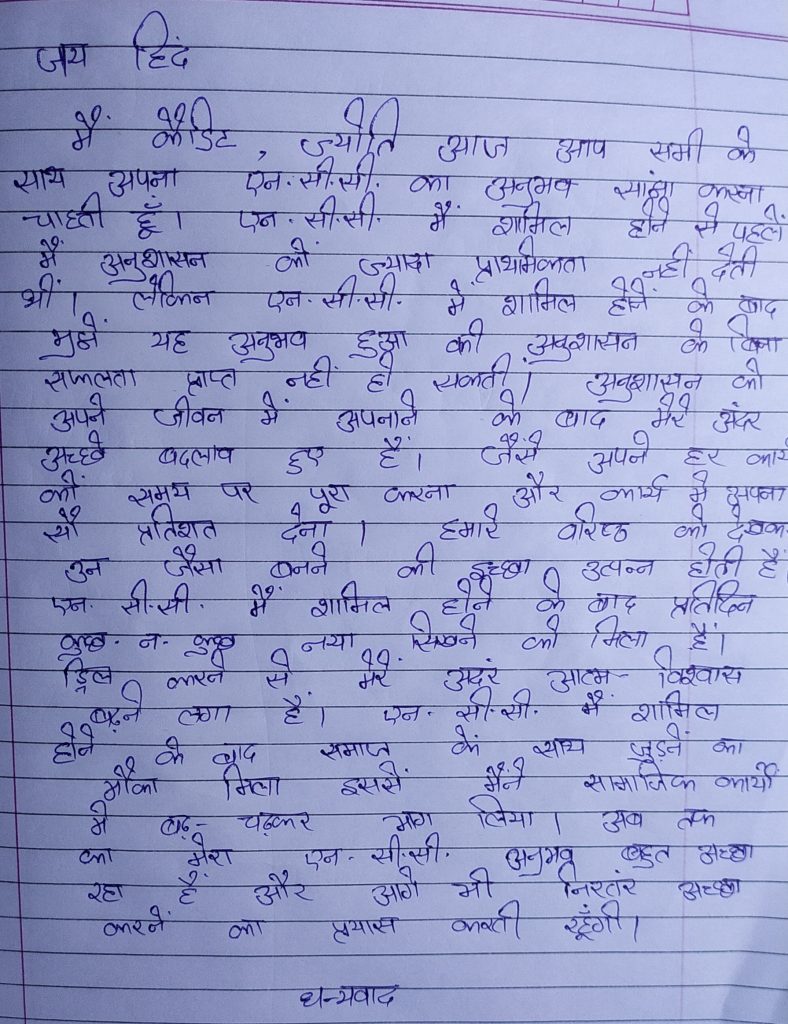 जय हिंद
मैं कैडिट, ज्योति आज आप सभी के
साथ अपना एन.सी.सी. का अनुभव सांझा करना
चाहती हूँ। एन.सी.सी. मैं शामिल होने से पहले
मैं अनुशासन को ज्यादा प्राथमिकता नहीं देती
थीं। लेकिन एन.सी.सी. में शामिल होने के बाद
मुझे यह अनुभव हुआ की अनुशासन के बिना
सफलता प्राप्त नहीं हो सकती। अनुशासन को
अपने जीवन में अपनाने के बाद मेरे अंदर
अच्छे बदलाव हुए हैं। जैसे अपने हर कार्य
को समय पर पूरा करना और कार्य में अपना
सौ प्रतिशत देना। हमारे वरिष्ठ को देखक
उन जैसा बनने की इच्छा उत्पन्न होती हैं
एन. सी.सी. मैं शामिल होने के बाद प्रतिदिन
कुछ-न-कुछ नया सिखने को मिला हैं।
ड्रिल करने से मेरे अदंर आत्म-विश्वास
बढ़ने लगा हैं। एन. सी.सी. मैं शामिल
होने के बाद समाज के साथ जुड़ने का
मौका मिला इससे मैंने सामाजिक कार्यों
में बढ़-चढ़कर भाग लिया। अब तक
का मेरा एन.सी.सी. अनुभव बहुत अच्छा
रहा हैं और आगे भी निरतंर अच्छा
करने का प्रयास करती रहूँगी।
धन्यवाद